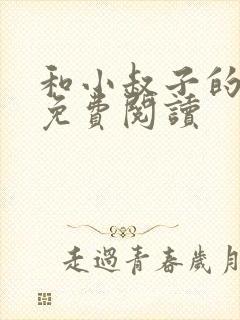 和小叔子的
免費閱讀
走過青春歲月